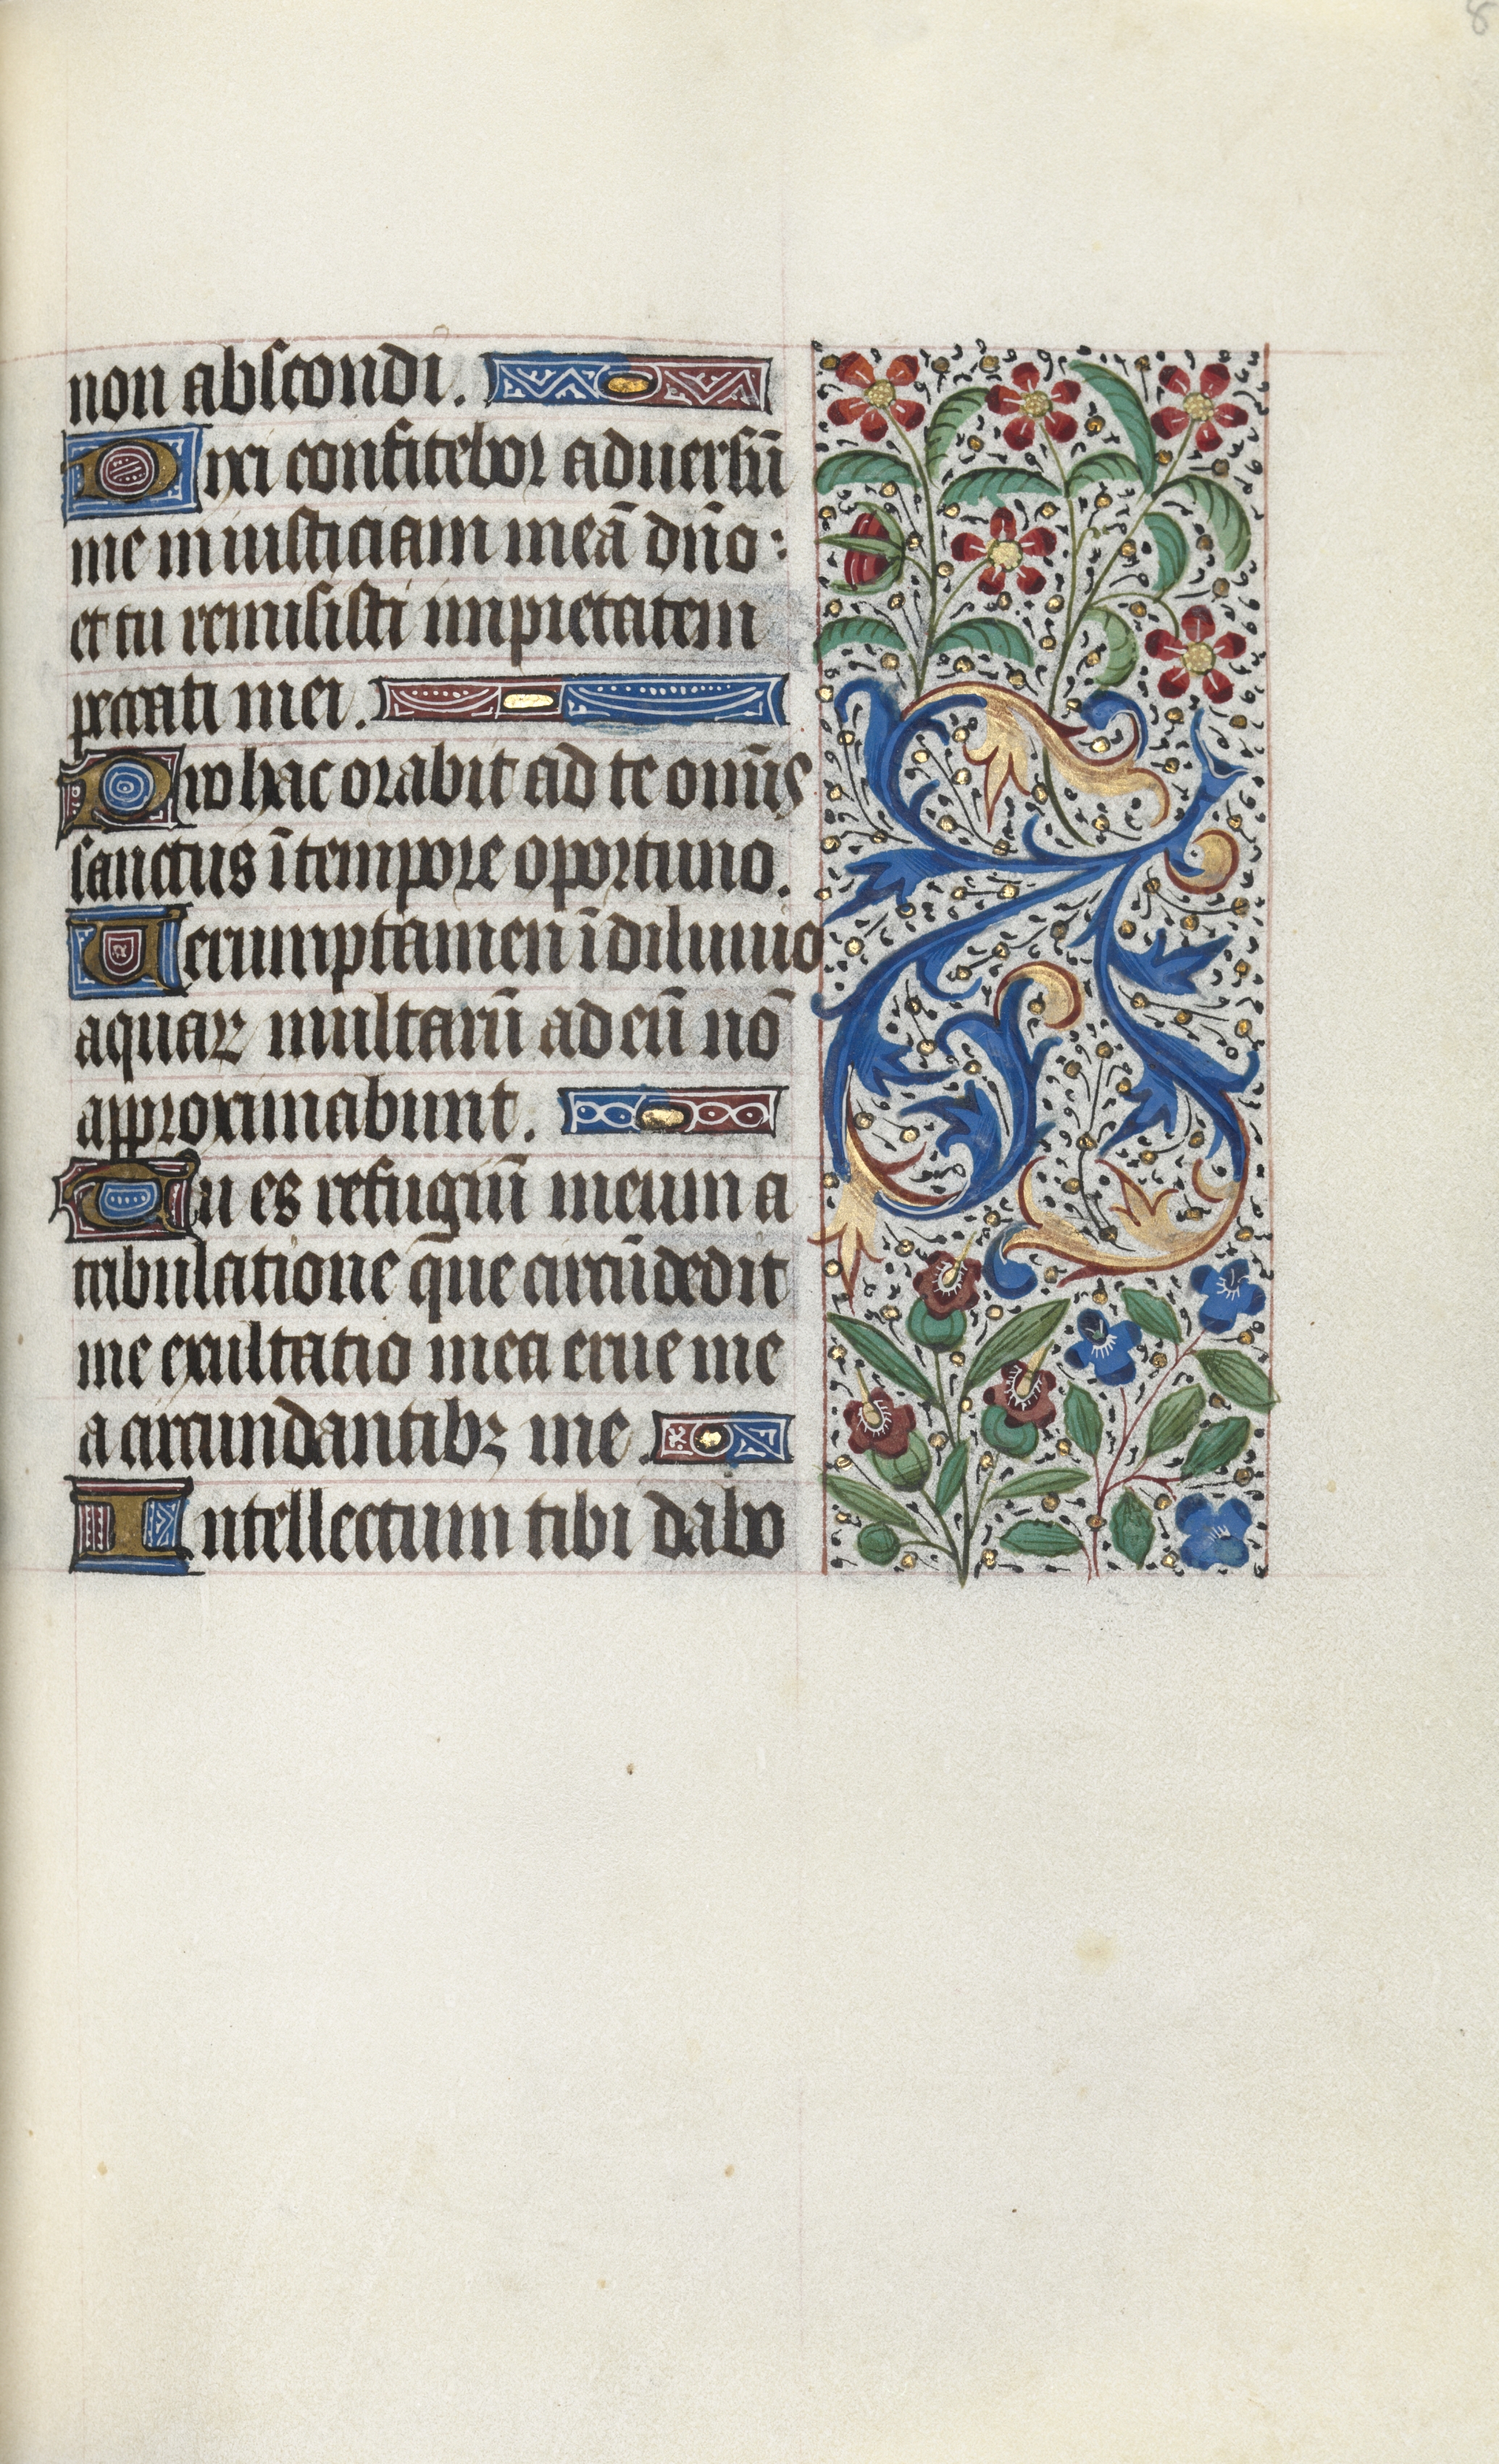 non abscondi.
Dixi confitebor aduersū
me iniusticiam meā dño:
et tu remisisti impietatem
peccati mei.
Pro hac orabit ad te omīs
sanctus ī tempore oportuno.
Uerumptamen ī diluuio
aquaꝝ multarū ad eū nō
approximabunt.
Tu es refugiū meum a
tribulatione que circūdedit
me exultatio mea erue me
a circundantibꝫ me.
Intellectum tibi dabo